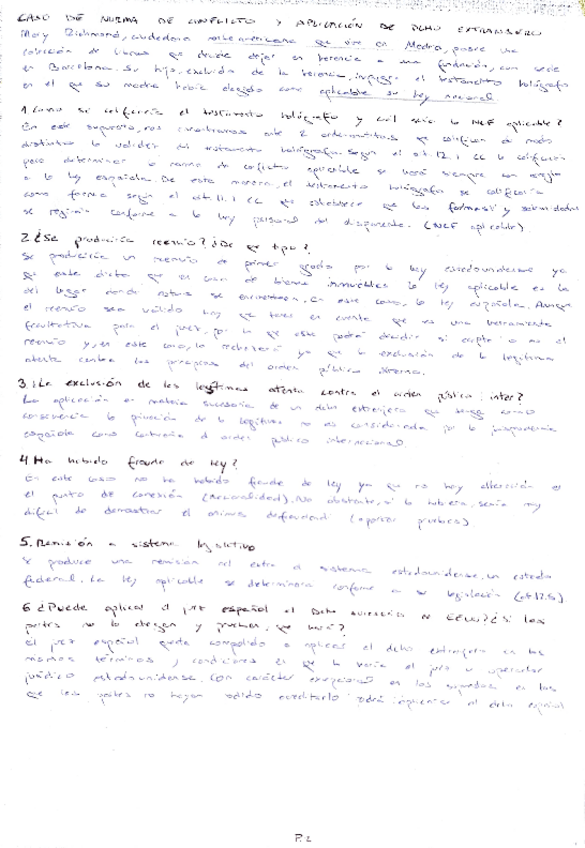 CASO DE NORMA DE CONFLICTO Y APLICACIÓN DE DCHO EXTRANJERO
Mary Richmond, ciudadana norteamericana que vive en Madrid, posee una
colección de que decide dejar en herencia a una fundación, con sede
en Barcelona. Su hijo, excluido de la herencia, impugna el testamento hológrafo
en el que su madre había elegido como aplicable su ley nacional.
1. Como se calificaría el testamento hológrafo y cuál sería la NCF aplicable?
En este supuesto, nos encontramos ante 2 ordenamientos que califican de modo
distinto la validez del testamento hológrafo. Según el art. 12.1 CC la calificación
para determinar la norma de conflicto aplicable se hará siempre con arreglo
a la ley española. De esta manera, el testamento hológrafo se calificaría
como forma según el art. 11.1 CC que establece que las formas y solemnidades
se regirán conforme a la ley personal del disponente. (NCF aplicable)
2. ¿Se produciría reenvío? ¿De que tipo?
Se produciría un reenvío de primer grado por la ley estadounidense ya
que esta dicta que en caso de bienes inmuebles la ley aplicable es la
del lugar donde estos se encuentren, en este caso, la ley española. Aunque
el reenvío sea válido hay que tener en cuenta que es una herramienta
facultativa para el juez, por lo que este podrá decidir si acepta o no el
reenvío y, en este caso, lo rechazará ya que la exclusión de la legítima
atenta contra los principios del orden público interno.
3. ¿La exclusión de las legítimas atenta contra el orden público inter?
La aplicación en materia sucesoria de un dcho extranjero que tenga como
consecuencia la privación de la legítima no es considerada por la jurisprudencia
española como contraria al orden público internacional
4 Ha habido fraude de ley?
En este caso no ha habido fraude de ley ya que no hay alteración en
el punto de conexión (nacionalidad). No obstante, si lo hubiera, sería muy
difícil de demostrar el animus defraudandi (aportar pruebas)
5. Remisión a sistema legislativo
Se produce una remisión al sistema estadounidense, un estado
federal. La ley aplicable se determinará conforme a su legislación (art 12.5)
6 ¿Puede aplicar el juez español el Dcho sucesorio de EEUU? ¿Si las
partes no lo alegan y prueban, que hará?
El juez español queda compelido a aplicar el dcho extranjero en los
mismos términos y condiciones en que lo haría el juez u operador
jurídico estadounidense. Con carácter excepcional en los supuestos en los
que las partes no hayan podido acreditarlo podrá aplicarse el dcho español
P.2